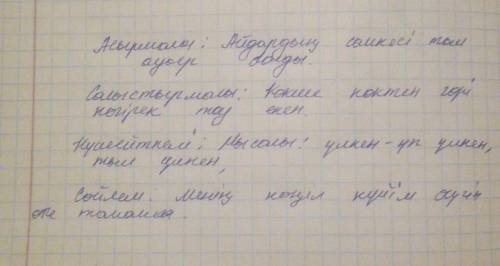 Асырмалы: Айдардың сөмкесі тым
ауыр болды.
Салыстырмалы: Көкше көктен гөрі
көгірек тау екен.
Күшейтпелі: Мысалы: үлкен - үп үлкен,
тым үлкен,
Сөйлем: Менің көңіл күйім бүгін
өте тамаша.